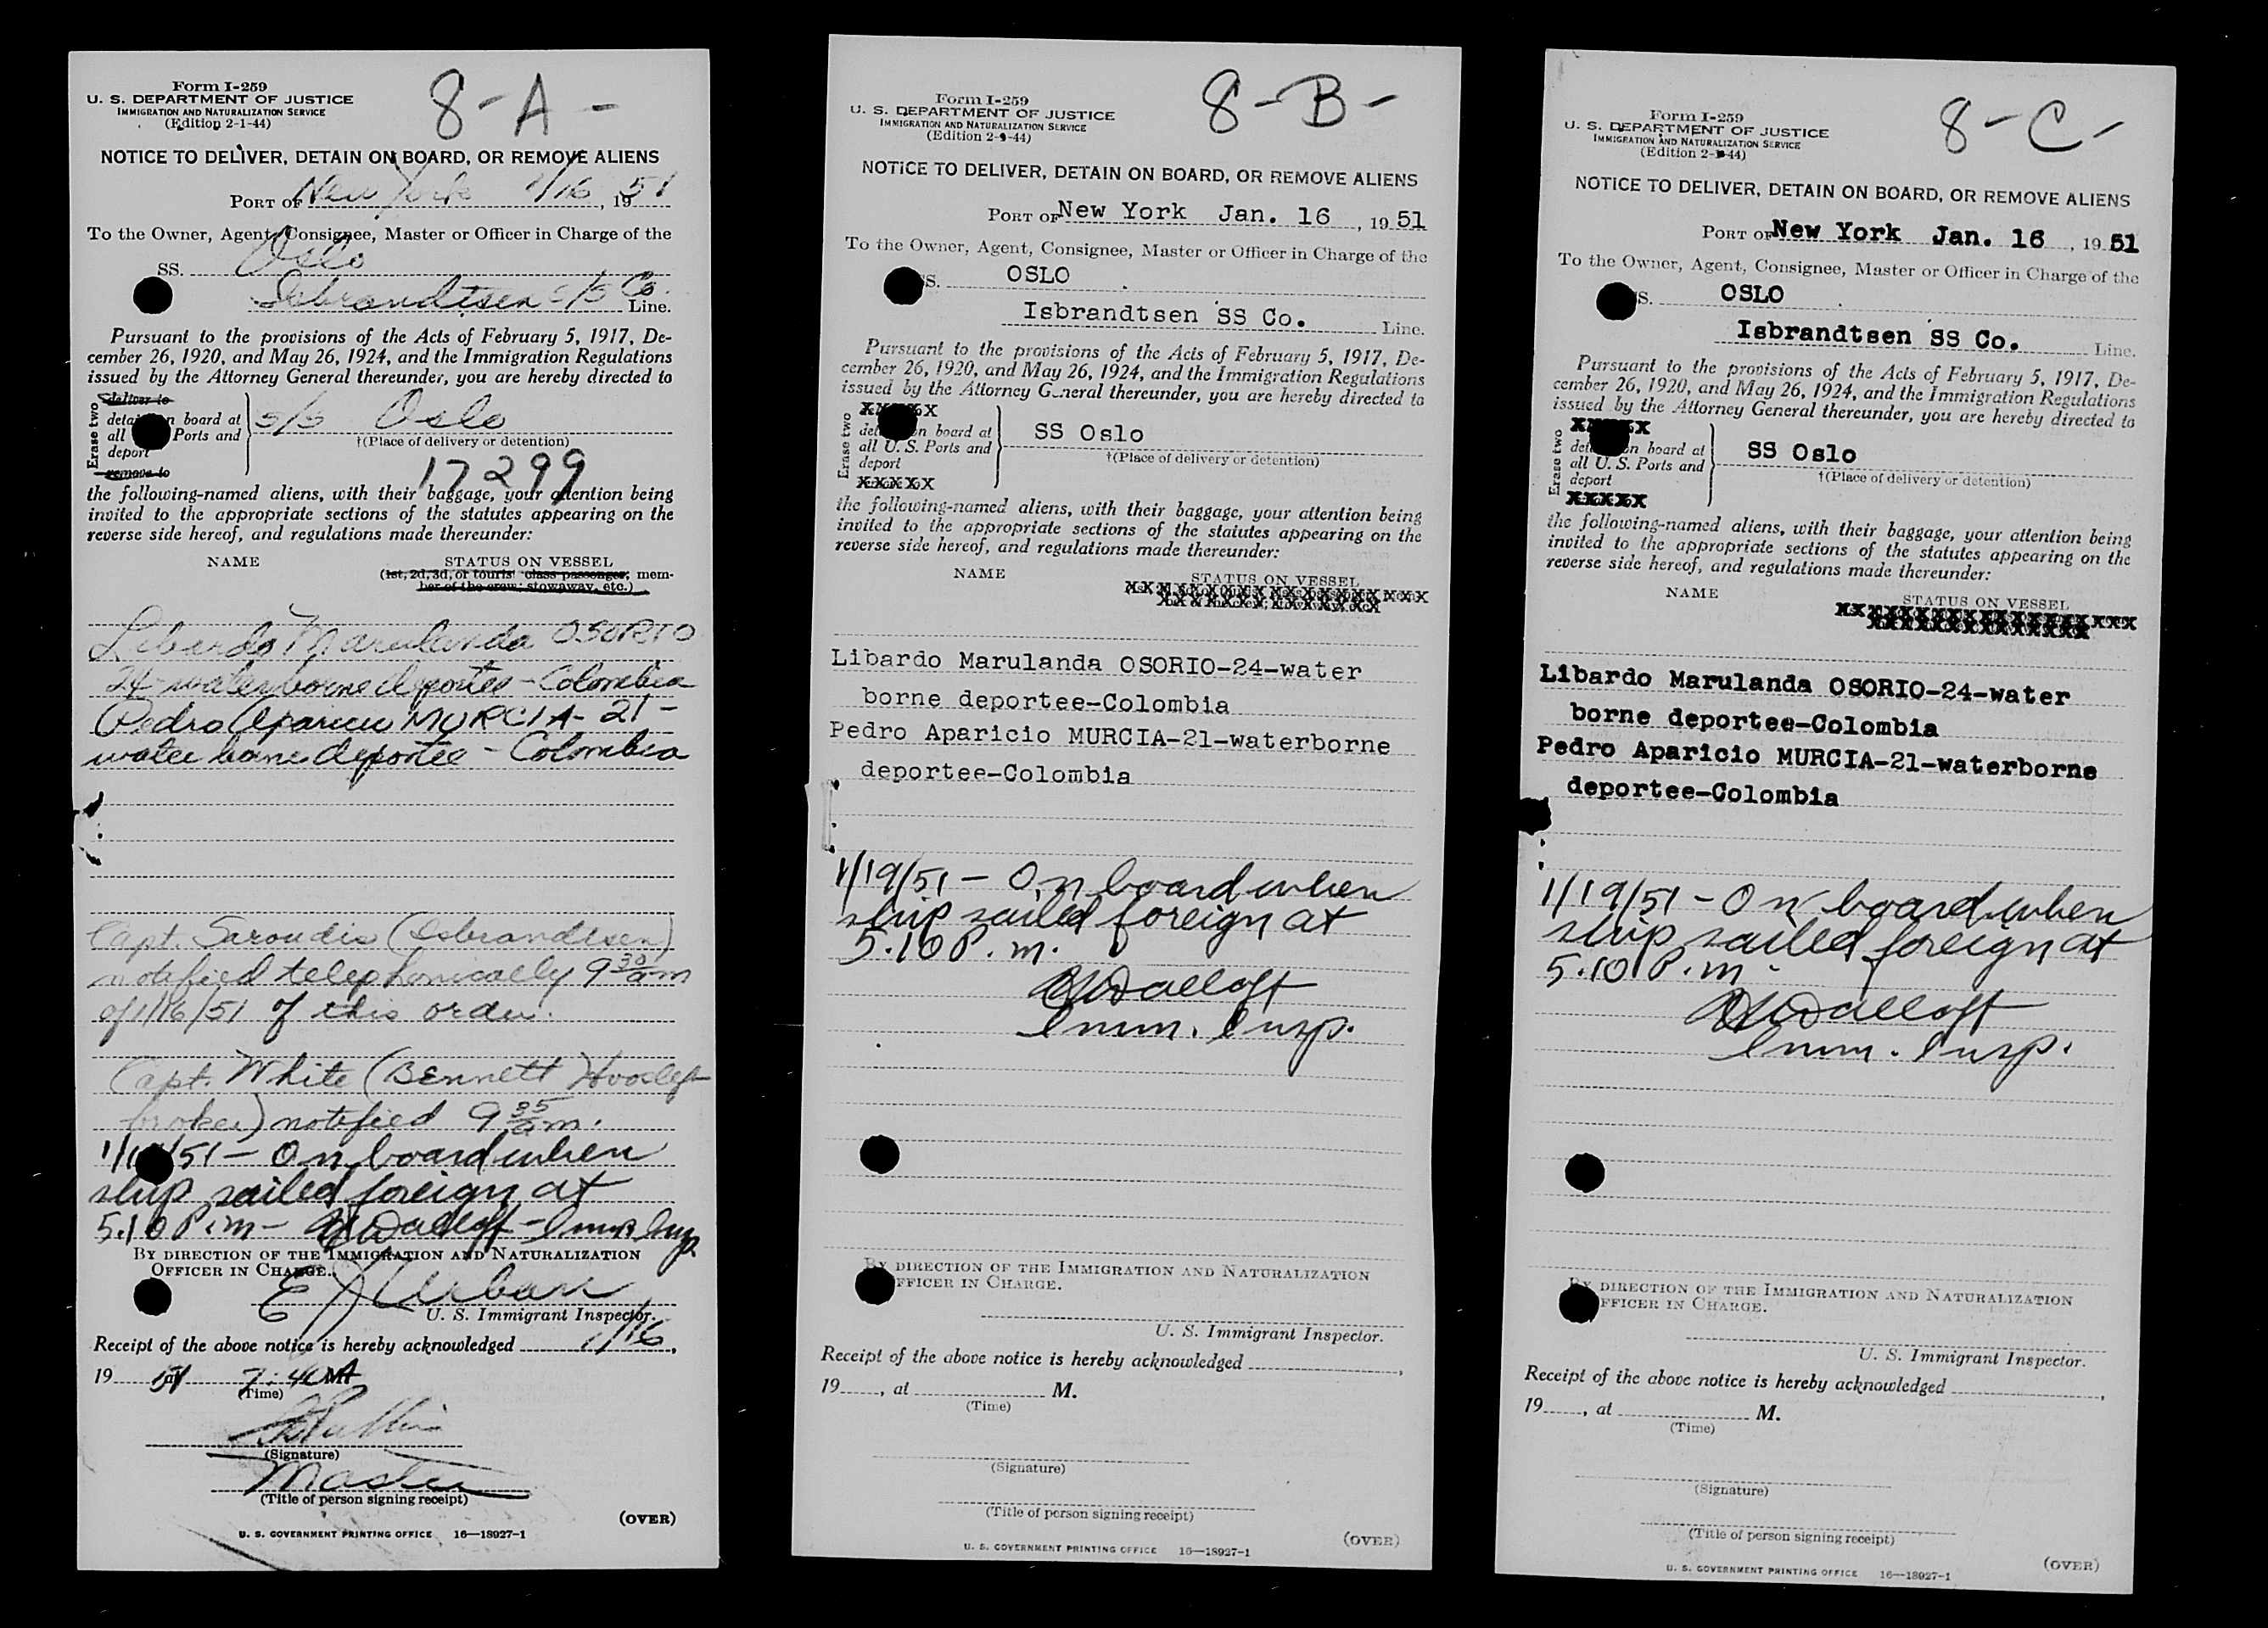 8-A-
Form I-259
U. S. DEPARTMENT OF JUSTICE
IMMIGRATION AND NATURALIZATION SERVICE
(Edition 2-1-44)
NOTICE TO DELIVER, DETAIN ON BOARD, OR REMOVE ALIENS
PORT OF New York 1/16, 1951
To the Owner, Agent, Consignee, Master or Officer in Charge of the
SS. Oslo
Isbrandtsen S/S Co. Line.
Pursuant to the provisions of the Acts of February 5, 1917, De-
cember 26, 1920, and May 26, 1924, and the Immigration Regulations
issued by the Attorney General thereunder, you are hereby directed to
Erase two
deliver to
detain on board at
all Ports and
deport
remove to
S/S Oslo
†(Place of delivery or detention)
17299
the following-named aliens, with their baggage, your attention being
invited to the appropriate sections of the statutes appearing on the
reverse side hereof, and regulations made thereunder:
NAME STATUS ON VESSEL
(1st, 2d, 3d, or tourist class passenger; mem-
ber of the crew; stowaway, etc.)
Libardo Marulanda OSORIO
24-waterborne deportee-Colombia
Pedro Aparicio MURCIA-21-
waterborne deportee-Colombia
Capt. Saroudis (Isbrandtsen)
notified telephonically 9 30 am
of 1/16/51 of this order.
Capt. White (Bennett
broker) notified 9 35 am.
/51 - On board when
ship sailed foreign at
5.10 P.m - Imm Insp.
BY DIRECTION OF THE IMMIGRATION AND NATURALIZATION
OFFICER IN CHARGE.
E J Urban
U. S. Immigrant Inspector.
Receipt of the above notice is hereby acknowledged 1/16,
19 51 at 7:40 AM
(Time)
(Signature)
Master
(Title of person signing receipt)
(OVER)
U. S. GOVERNMENT PRINTING OFFICE 16—18927-1
8-B-
Form I-259
U. S. DEPARTMENT OF JUSTICE
IMMIGRATION AND NATURALIZATION SERVICE
(Edition 2-1-44)
NOTICE TO DELIVER, DETAIN ON BOARD, OR REMOVE ALIENS
PORT OF New York Jan. 16, 1951
To the Owner, Agent, Consignee, Master or Officer in Charge of the
SS. OSLO
Isbrandtsen SS Co. Line.
Pursuant to the provisions of the Acts of February 5, 1917, De-
cember 26, 1920, and May 26, 1924, and the Immigration Regulations
issued by the Attorney General thereunder, you are hereby directed to
Erase two
detain on board at
all U. S. Ports and
deport
XXXXX
SS Oslo
†(Place of delivery or detention)
the following-named aliens, with their baggage, your attention being
invited to the appropriate sections of the statutes appearing on the
reverse side hereof, and regulations made thereunder:
NAME STATUS ON VESSEL
Libardo Marulanda OSORIO-24-water
borne deportee-Colombia
Pedro Aparicio MURCIA-21-waterborne
deportee-Colombia
1/19/51 - On board when
ship sailed foreign at
5.10 P.m.
Imm. Insp.
BY DIRECTION OF THE IMMIGRATION AND NATURALIZATION
OFFICER IN CHARGE.
U. S. Immigrant Inspector.
Receipt of the above notice is hereby acknowledged ,
19 , at M.
(Time)
(Signature)
(Title of person signing receipt)
(OVER)
U. S. GOVERNMENT PRINTING OFFICE 16—18927-1
8-C-
Form I-259
U. S. DEPARTMENT OF JUSTICE
IMMIGRATION AND NATURALIZATION SERVICE
(Edition 2-1-44)
NOTICE TO DELIVER, DETAIN ON BOARD, OR REMOVE ALIENS
PORT OF New York Jan. 16, 1951
To the Owner, Agent, Consignee, Master or Officer in Charge of the
SS. OSLO
Isbrandtsen SS Co. Line.
Pursuant to the provisions of the Acts of February 5, 1917, De-
cember 26, 1920, and May 26, 1924, and the Immigration Regulations
issued by the Attorney General thereunder, you are hereby directed to
Erase two
detain on board at
all U. S. Ports and
deport
XXXXX
SS Oslo
†(Place of delivery or detention)
the following-named aliens, with their baggage, your attention being
invited to the appropriate sections of the statutes appearing on the
reverse side hereof, and regulations made thereunder:
NAME STATUS ON VESSEL
Libardo Marulanda OSORIO-24-water
borne deportee-Colombia
Pedro Aparicio MURCIA-21-waterborne
deportee-Colombia
1/19/51 - On board when
ship sailed foreign at
5.10 P.m.
Imm. Insp.
BY DIRECTION OF THE IMMIGRATION AND NATURALIZATION
OFFICER IN CHARGE.
U. S. Immigrant Inspector.
Receipt of the above notice is hereby acknowledged ,
19 , at M.
(Time)
(Signature)
(Title of person signing receipt)
(OVER)
U. S. GOVERNMENT PRINTING OFFICE 16—18927-1